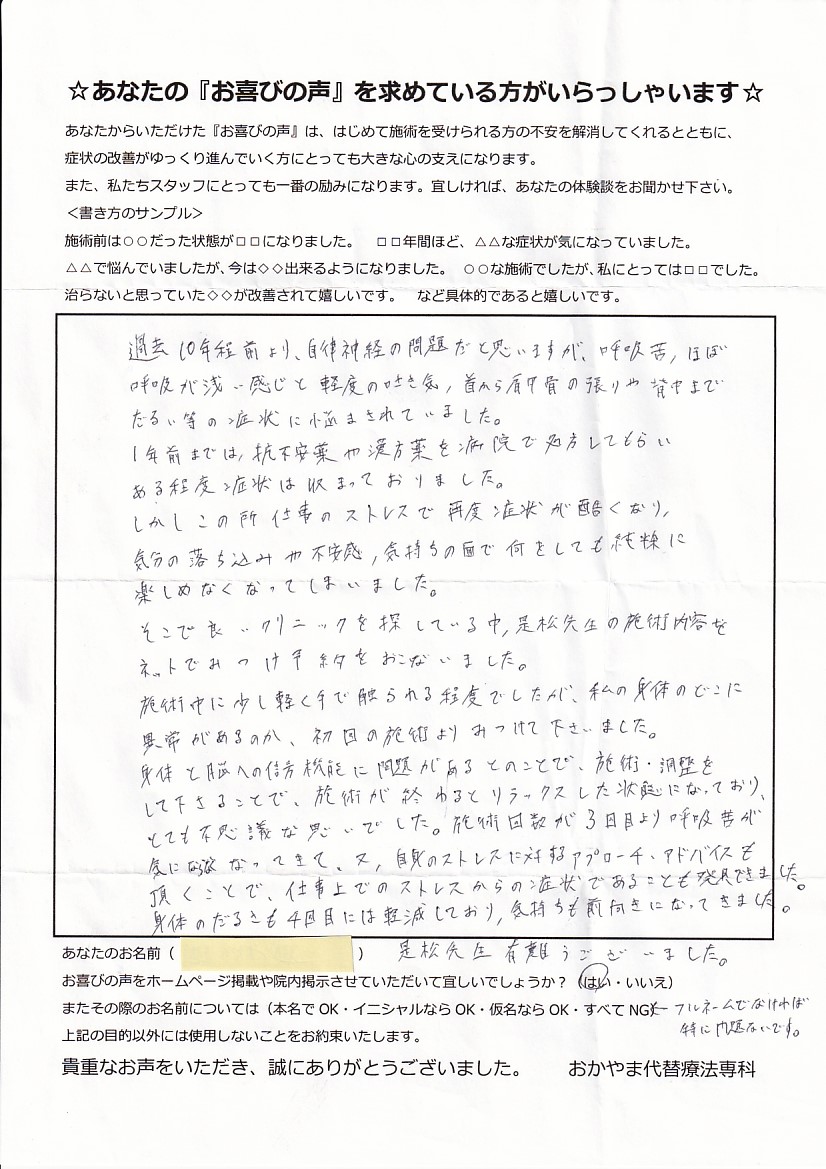 ☆あなたの『お喜びの声』を求めている方がいらっしゃいます☆
あなたからいただけた『お喜びの声』は、はじめて施術を受けられる方の不安を解消してくれるとともに、
症状の改善がゆっくり進んでいく方にとっても大きな心の支えになります。
また、私たちスタッフにとっても一番の励みになります。宜しければ、あなたの体験談をお聞かせ下さい。
＜書き方のサンプル＞
施術前は○○だった状態が□□になりました。　□□年間ほど、△△な症状が気になっていました。
△△で悩んでいましたが、今は◇◇出来るようになりました。　○○な施術でしたが、私にとっては□□でした。
治らないと思っていた◇◇が改善されて嬉しいです。　など具体的であると嬉しいです。
過去10年程前より、自律神経の問題だと思いますが、呼吸苦，ほぼ
呼吸が浅い感じと軽度の吐き気，首から肩甲骨の張りや背中まで
だるい等の症状に悩まされていました。
1年前までは，抗不安薬や漢方薬を病院で処方してもらい
ある程度症状は収まっておりました。
しかしこの所仕事のストレスで再度症状が酷くなり，
気分の落ち込みや不安感，気持ちの面で何をしても純粋に
楽しめなくなってしまいました。
そこで良いクリニックを探している中，是松先生の施術内容を
ネットでみつけ予約をおこないました。
施術中に少し軽く手で触られる程度でしたが、私の身体のどこに
異常があるのか、初回の施術よりみつけて下さいました。
身体と脳への信号機能に問題があるとのことで、施術・調整を
して下さることで、施術が終わるとリラックスした状態になっており、
とても不思議な思いでした。施術回数が3回目より呼吸苦が
気にならなくなってきて、又，自身のストレスに対するアプローチ・アドバイスも
頂くことで、仕事上でのストレスからの症状であることも発見できました。
身体のだるさも4回目には軽減しており，気持ちも前向きになってきました。
あなたのお名前（　　　）　是松先生有難うございました。
お喜びの声をホームページ掲載や院内掲示させていただいて宜しいでしょうか？（はい・いいえ）
またその際のお名前については（本名でOK・イニシャルならOK・仮名ならOK・すべてNG）← フルネームでなければ
特に問題ないです。
上記の目的以外には使用しないことをお約束いたします。
貴重なお声をいただき、誠にありがとうございました。　　おかやま代替療法専科